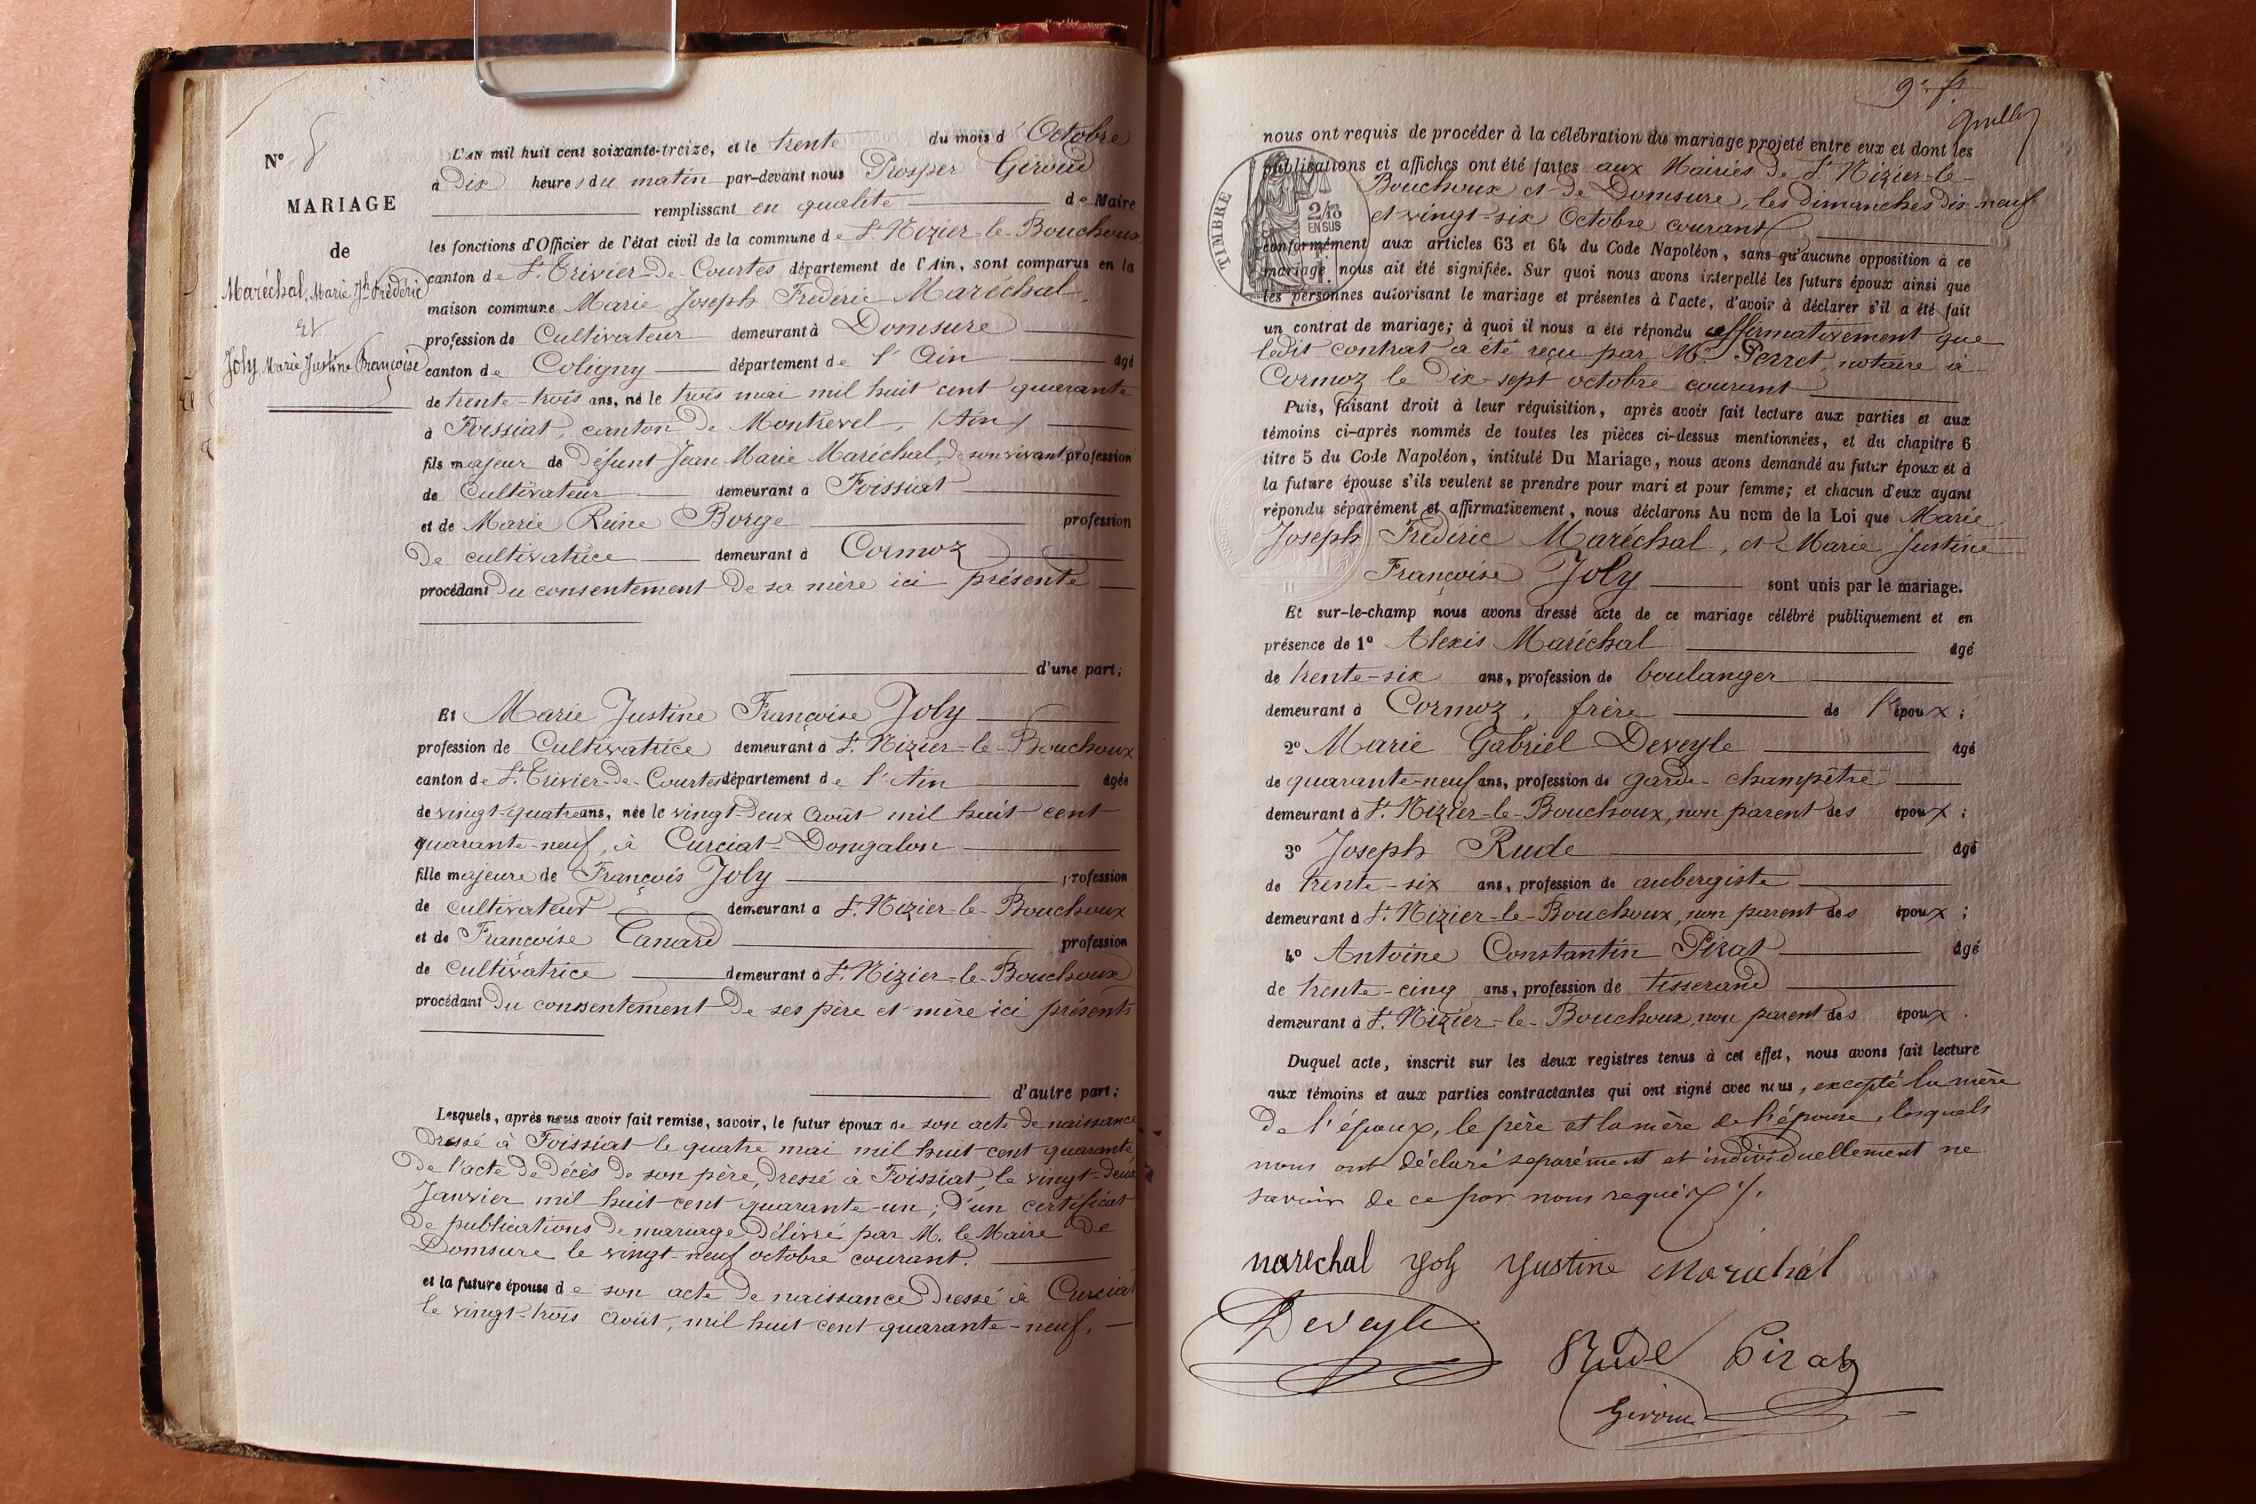 N° 8
MARIAGE
de
Maréchal, Marie Jh Frédéric
et
Joly Marie Justine Françoise
L'AN mil huit cent soixante-treize, et le trente du mois d'Octobre
à Dix heures du matin par-devant nous Prosper Giroud
remplissant en qualité de Maire
les fonctions d'Officier de l'état civil de la commune de St Nizier-le-Bouchoux
canton de St. Trivier-de-Courtes, département de l'Ain, sont comparus en la
maison commune Marie Joseph Frédéric Maréchal,
profession de Cultivateur demeurant à Domsure
canton de Coligny département de l'Ain âgé
de trente-trois ans, né le trois mai mil huit cent quarante
à Foissiat, canton de Montrevel, (Ain)
fils majeur de défunt Jean Marie Maréchal, de son vivant profession
de Cultivateur demeurant à Foissiat
et de Marie Reine Borge profession
de cultivatrice demeurant à Cormoz
procédant du consentement de sa mère ici présente
d'une part;
Et Marie Justine Françoise Joly
profession de Cultivatrice demeurant à St. Nizier-le-Bouchoux
canton de St. Trivier-de-Courtes département de l'Ain âgée
de vingt-quatre ans, née le vingt-deux Août mil huit cent
quarante-neuf, à Curciat-Dongalon
fille majeure de François Joly profession
de cultivateur demeurant à St. Nizier-le-Bouchoux
et de Françoise Canard profession
de cultivatrice demeurant à St. Nizier-le-Bouchoux
procédant du consentement de ses père et mère ici présents
d'autre part;
Lesquels, après nous avoir fait remise, savoir, le futur époux de son acte de naissance
dressé à Foissiat le quatre mai mil huit cent quarante
de l'acte de décès de son père, dressé à Foissiat, le vingt-deux
Janvier mil huit cent quarante-un; d'un certificat
de publications de mariage délivré par M. le Maire de
Domsure le vingt-neuf octobre courant.
et la future épouse de son acte de naissance dressé à Curciat
le vingt-trois Août, mil huit cent quarante-neuf.
9e ft
nous ont requis de procéder à la célébration du mariage projeté entre eux et dont les
publications et affiches ont été faites aux Mairies de St. Nizier-le-
Bouchoux et de Domsure, les dimanches dix-neuf
et vingt-six Octobre courant
TIMBRE
2/10 EN SUS
conformément aux articles 63 et 64 du Code Napoléon, sans qu'aucune opposition à ce
mariage nous ait été signifiée. Sur quoi nous avons interpellé les futurs époux ainsi que
les personnes autorisant le mariage et présentes à l'acte, d'avoir à déclarer s'il a été fait
un contrat de mariage; à quoi il nous a été répondu affirmativement que
ledit contrat a été reçu par Me Perret, notaire à
Cormoz le dix-sept octobre courant
Puis, faisant droit à leur réquisition, après avoir fait lecture aux parties et aux
témoins ci-après nommés de toutes les pièces ci-dessus mentionnées, et du chapitre 6
titre 5 du Code Napoléon, intitulé Du Mariage, nous avons demandé au futur époux et à
la future épouse s'ils veulent se prendre pour mari et pour femme; et chacun d'eux ayant
répondu séparément et affirmativement, nous déclarons Au nom de la Loi que Marie
Joseph Frédéric Maréchal, et Marie Justine
Françoise Joly sont unis par le mariage.
Et sur-le-champ nous avons dressé acte de ce mariage célébré publiquement et en
présence de 1° Alexis Maréchal âgé
de trente-six ans, profession de boulanger
demeurant à Cormoz, frère de l'époux;
2° Marie Gabriel Deveyle âgé
de quarante-neuf ans, profession de garde-champêtre
demeurant à St. Nizier-le-Bouchoux, non parent des époux;
3° Joseph Rude âgé
de trente-six ans, profession de aubergiste
demeurant à St. Nizier-le-Bouchoux, non parent des époux;
4° Antoine Constantin Pirat âgé
de trente-cinq ans, profession de tisserand
demeurant à St. Nizier-le-Bouchoux, non parent des époux.
Duquel acte, inscrit sur les deux registres tenus à cet effet, nous avons fait lecture
aux témoins et aux parties contractantes qui ont signé avec nous, excepté la mère
de l'époux, le père et la mère de l'épouse, lesquels
nous ont déclaré séparément et individuellement ne
savoir de ce par nous requis.
marechal Joly Justine Maréchal
Deveyle
Rude Pirat
Giroud